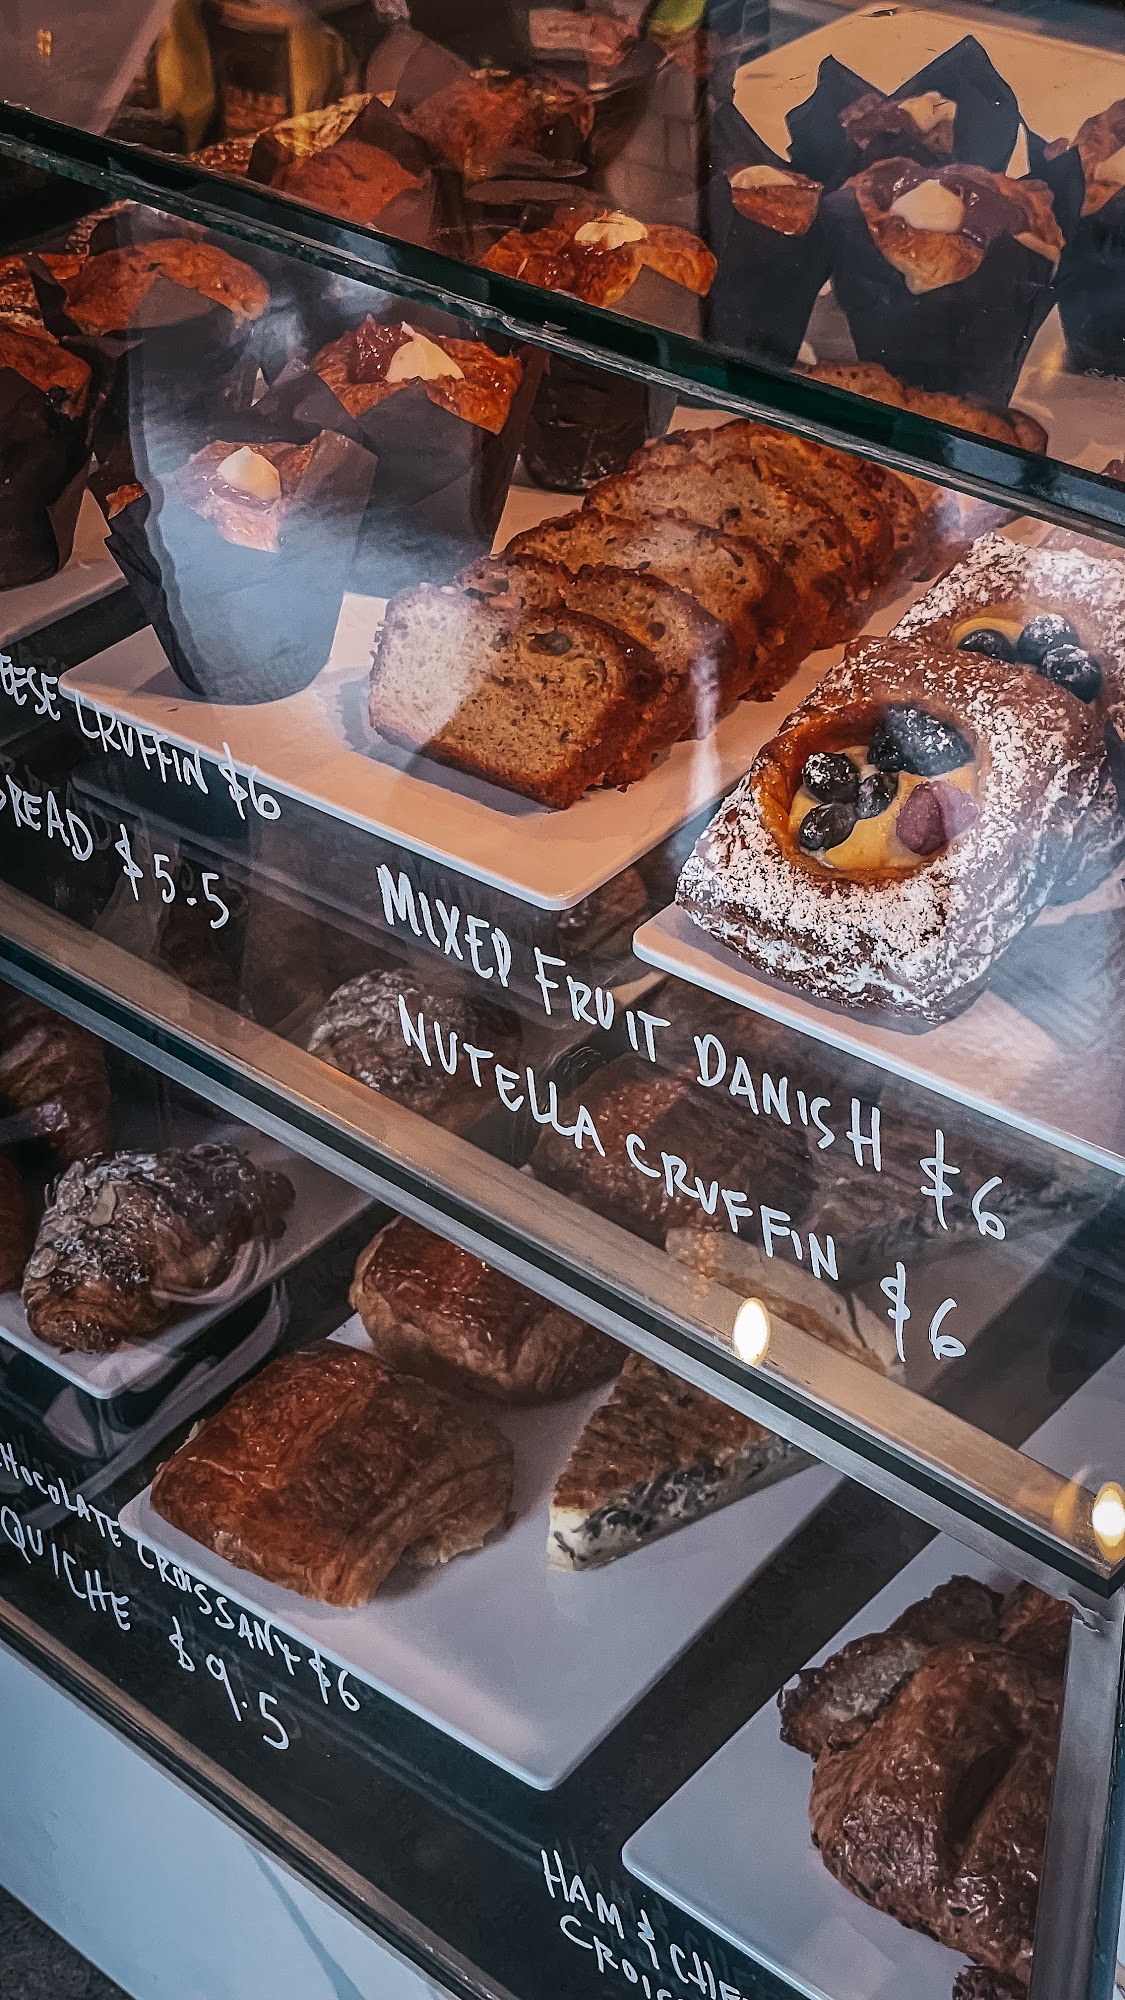 CRUFFIN $6
BREAD $5.5
MIXED FRUIT DANISH $6
NUTELLA CRUFFIN $6
CHOCOLATE CROISSANT $6
QUICHE $9.5
HAM &